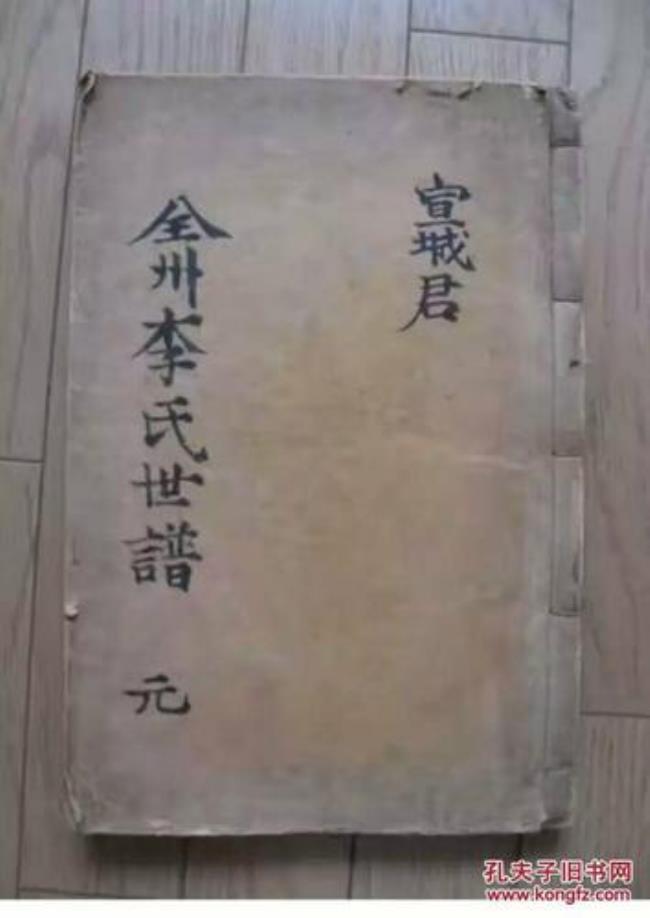 宣城君
全州李氏世譜 元
孔夫子旧书网
www.kongfz.com